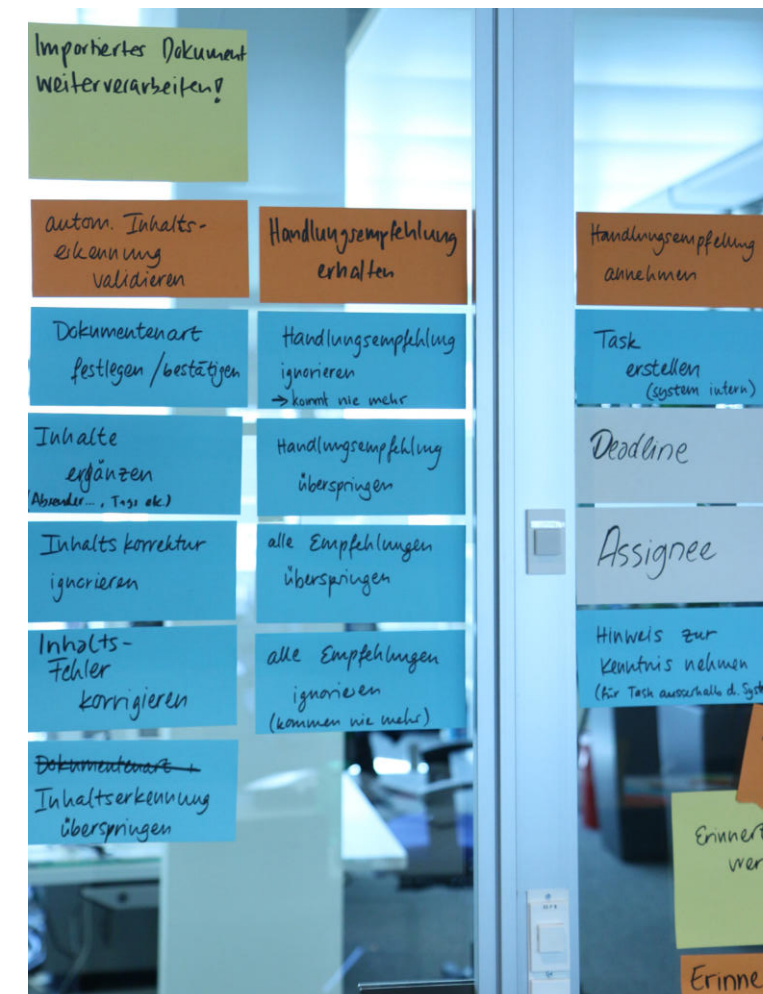 Importiertes Dokument
weiterverarbeiten!
autom. Inhalts-
erkennung
validieren
Dokumentenart
festlegen / bestätigen
Inhalte
ergänzen
(Absender..., Tags etc.)
Inhaltskorrektur
ignorieren
Inhalts-
Fehler
korrigieren
Dokumentenart +
Inhaltserkennung
überspringen
Handlungsempfehlung
erhalten
Handlungsempfehlung
ignorieren
→ kommt nie mehr
Handlungsempfehlung
überspringen
alle Empfehlungen
überspringen
alle Empfehlungen
ignorieren
(kommen nie mehr)
Handlungsempfelung
annehmen
Task
erstellen
(system intern)
Deadline
Assignee
Hinweis zur
Kenntnis nehmen
(für Task ausserhalb d. Syst
Erinner
wer
Erinne